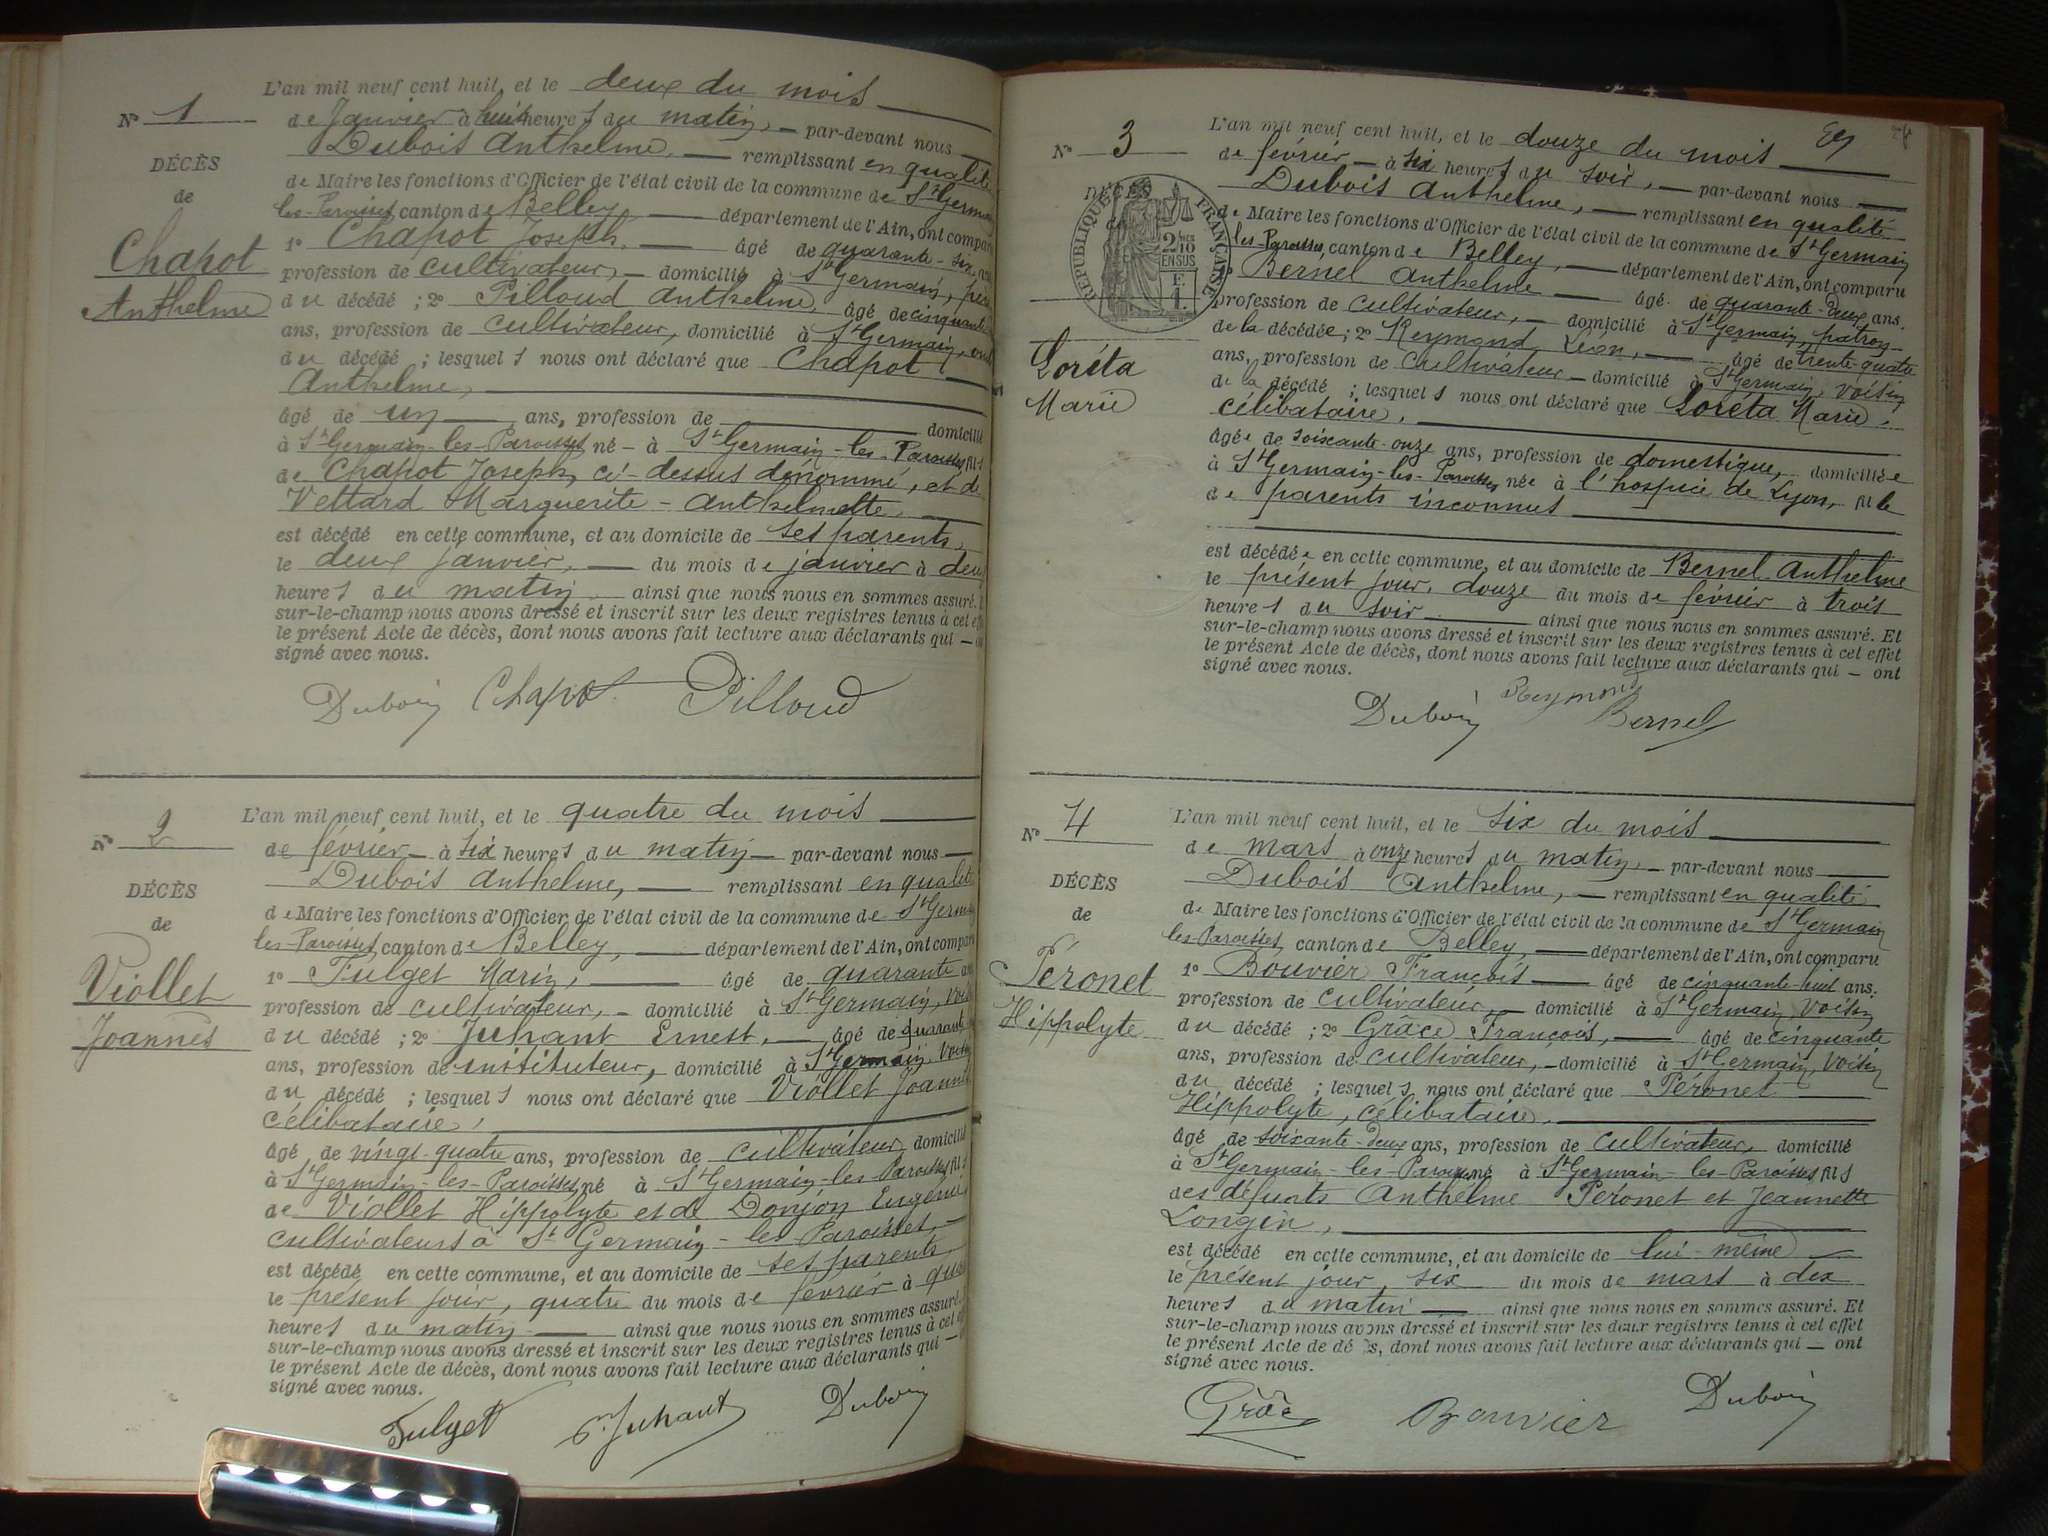 L'an mil neuf cent huit, et le deux du mois
N° 1
de Janvier à huit heures du matin, — par-devant nous
Dubois Anthelme, — remplissant en qualité
DÉCÈS
de Maire les fonctions d'Officier de l'état civil de la commune de St Germain
de
les-Paroisses, canton de Belley, — département de l'Ain, ont comparu
Chapot
1° Chapot Joseph, — âgé de quarante-six ans
profession de cultivateur, — domicilié à St Germain, père
Anthelme
du décédé ; 2° Pilloud Anthelme, âgé de cinquante
ans, profession de cultivateur, domicilié à St Germain,
du décédé ; lesquels nous ont déclaré que Chapot
Anthelme,
âgé de un ans, profession de domicilié
à St Germain-les-Paroisses né - à St Germain-les-Paroisses fils
de Chapot Joseph, ci-dessus dénommé, et de
Vettard Marguerite-Anthelmette
est décédé en cette commune, et au domicile de ses parents,
le deux janvier, — du mois de janvier à deux
heures du matin — ainsi que nous nous en sommes assuré.
sur-le-champ nous avons dressé et inscrit sur les deux registres tenus à cet
le présent Acte de décès, dont nous avons fait lecture aux déclarants qui —
signé avec nous.
Dubois Chapot Pilloud
L'an mil neuf cent huit, et le quatre du mois
N° 2
de février — à six heures du matin — par-devant nous
Dubois Anthelme, — remplissant en qualité
DÉCÈS
de Maire les fonctions d'Officier de l'état civil de la commune de St Germain
de
les-Paroisses, canton de Belley, — département de l'Ain, ont comparu
Viollet
1° Fulget Marin, — âgé de quarante ans
profession de cultivateur, — domicilié à St Germain, voisin
Joannès
du décédé ; 2° Juhant Ernest, — âgé de quarante
ans, profession de instituteur, domicilié à St Germain, voisin
du décédé ; lesquels nous ont déclaré que Viollet Joannès
célibataire,
âgé de vingt-quatre ans, profession de cultivateur, domicilié
à St Germain-les-Paroisses, né à St Germain-les-Paroisses fils
de Viollet Hippolyte et de Donjon Eugénie
cultivateurs à St Germain-les-Paroisses, —
est décédé en cette commune, et au domicile de ses parents
le présent jour, quatre du mois de février à
heures du matin — ainsi que nous nous en sommes assuré.
sur-le-champ nous avons dressé et inscrit sur les deux registres tenus à cet
le présent Acte de décès, dont nous avons fait lecture aux déclarants qui —
signé avec nous.
Fulget E. Juhant Dubois
L'an mil neuf cent huit, et le douze du mois
N° 3
de février — à six heures du soir, — par-devant nous
Dubois Anthelme, — remplissant en qualité
DÉCÈS
RÉPUBLIQUE FRANÇAISE
2/10 EN SUS
F. 1.
de Maire les fonctions d'Officier de l'état civil de la commune de St Germain
les-Paroisses, canton de Belley, — département de l'Ain, ont comparu
Bernel Anthelme — âgé de quarante-deux ans.
profession de cultivateur, — domicilié à St Germain, patron
de la décédée ; 2° Reymond Léon, — âgé de trente-quatre
Loréta
ans, profession de cultivateur — domicilié à St Germain, voisin
Marie
de la décédé ; lesquels nous ont déclaré que Loréta Marie,
célibataire,
âgée de soixante-onze ans, profession de domestique, domiciliée
à St Germain-les-Paroisses, née à l'hospice de Lyon, fille
de parents inconnus
est décédée en cette commune, et au domicile de Bernel Anthelme
le présent jour, douze du mois de février à trois
heures du soir — ainsi que nous nous en sommes assuré. Et
sur-le-champ nous avons dressé et inscrit sur les deux registres tenus à cet effet
le présent Acte de décès, dont nous avons fait lecture aux déclarants qui — ont
signé avec nous.
Dubois Reymond Bernel
L'an mil neuf cent huit, et le six du mois
N° 4
de mars à onze heures du matin, — par-devant nous
Dubois Anthelme, — remplissant en qualité
DÉCÈS
de Maire les fonctions d'Officier de l'état civil de la commune de St Germain
de
les-Paroisses, canton de Belley, — département de l'Ain, ont comparu
Péronet
1° Bouvier François — âgé de cinquante-huit ans.
profession de cultivateur, — domicilié à St Germain, voisin
Hippolyte
du décédé ; 2° Grâce François, — âgé de cinquante
ans, profession de cultivateur, — domicilié à St Germain, voisin
du décédé ; lesquels nous ont déclaré que Péronet
Hippolyte, célibataire,
âgé de soixante-deux ans, profession de cultivateur, domicilié
à St Germain-les-Paroisses, né à St Germain-les-Paroisses fils
des défunts Anthelme Péronet et Jeannette
Longin,
est décédé en cette commune, et au domicile de lui-même
le présent jour, six du mois de mars à dix
heures du matin — ainsi que nous nous en sommes assuré. Et
sur-le-champ nous avons dressé et inscrit sur les deux registres tenus à cet effet
le présent Acte de décès, dont nous avons fait lecture aux déclarants qui — ont
signé avec nous.
Grâce Bouvier Dubois